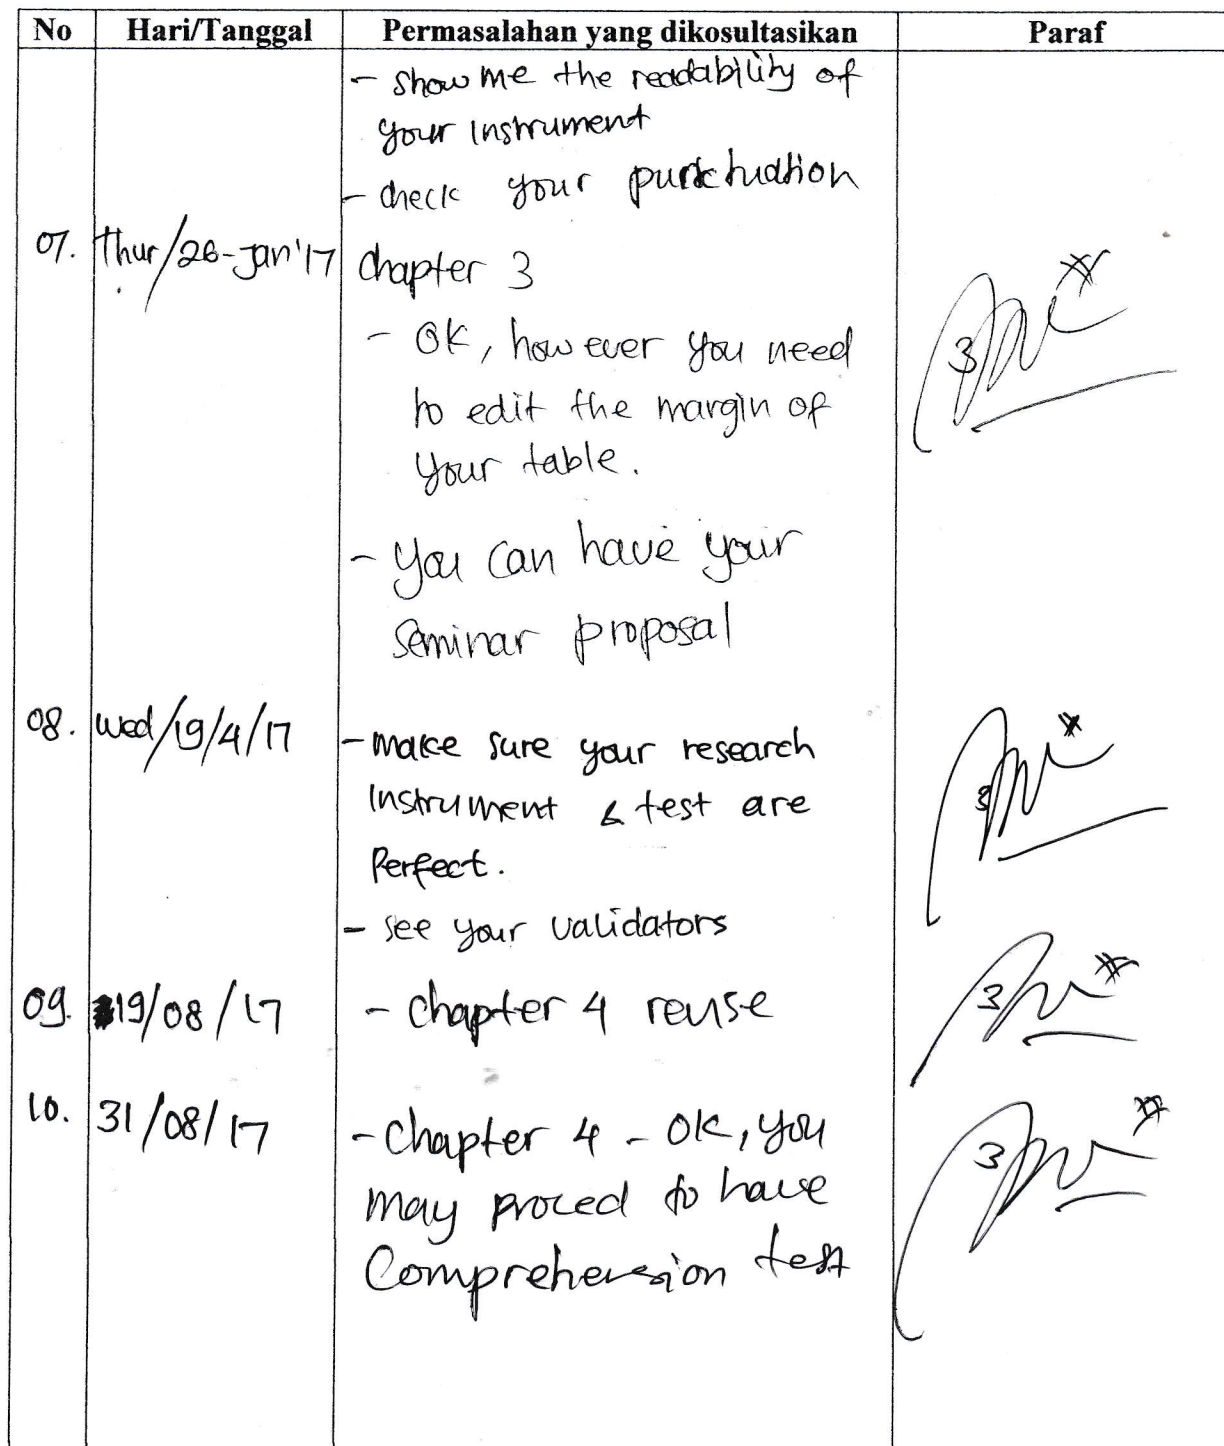 No Hari/Tanggal Permasalahan yang dikosultasikan Paraf
- show me the readability of
your instrument
- check your punctuation
07. Thur/26-Jan'17 chapter 3
- OK, however you need
to edit the margin of
your table.
- You can have your
seminar proposal
08. wed/19/4/17 - make sure your research
instrument & test are
perfect.
- see your validators
09. 19/08/17 - chapter 4 revise
10. 31/08/17 - chapter 4 - OK, you
may proced to have
comprehension test